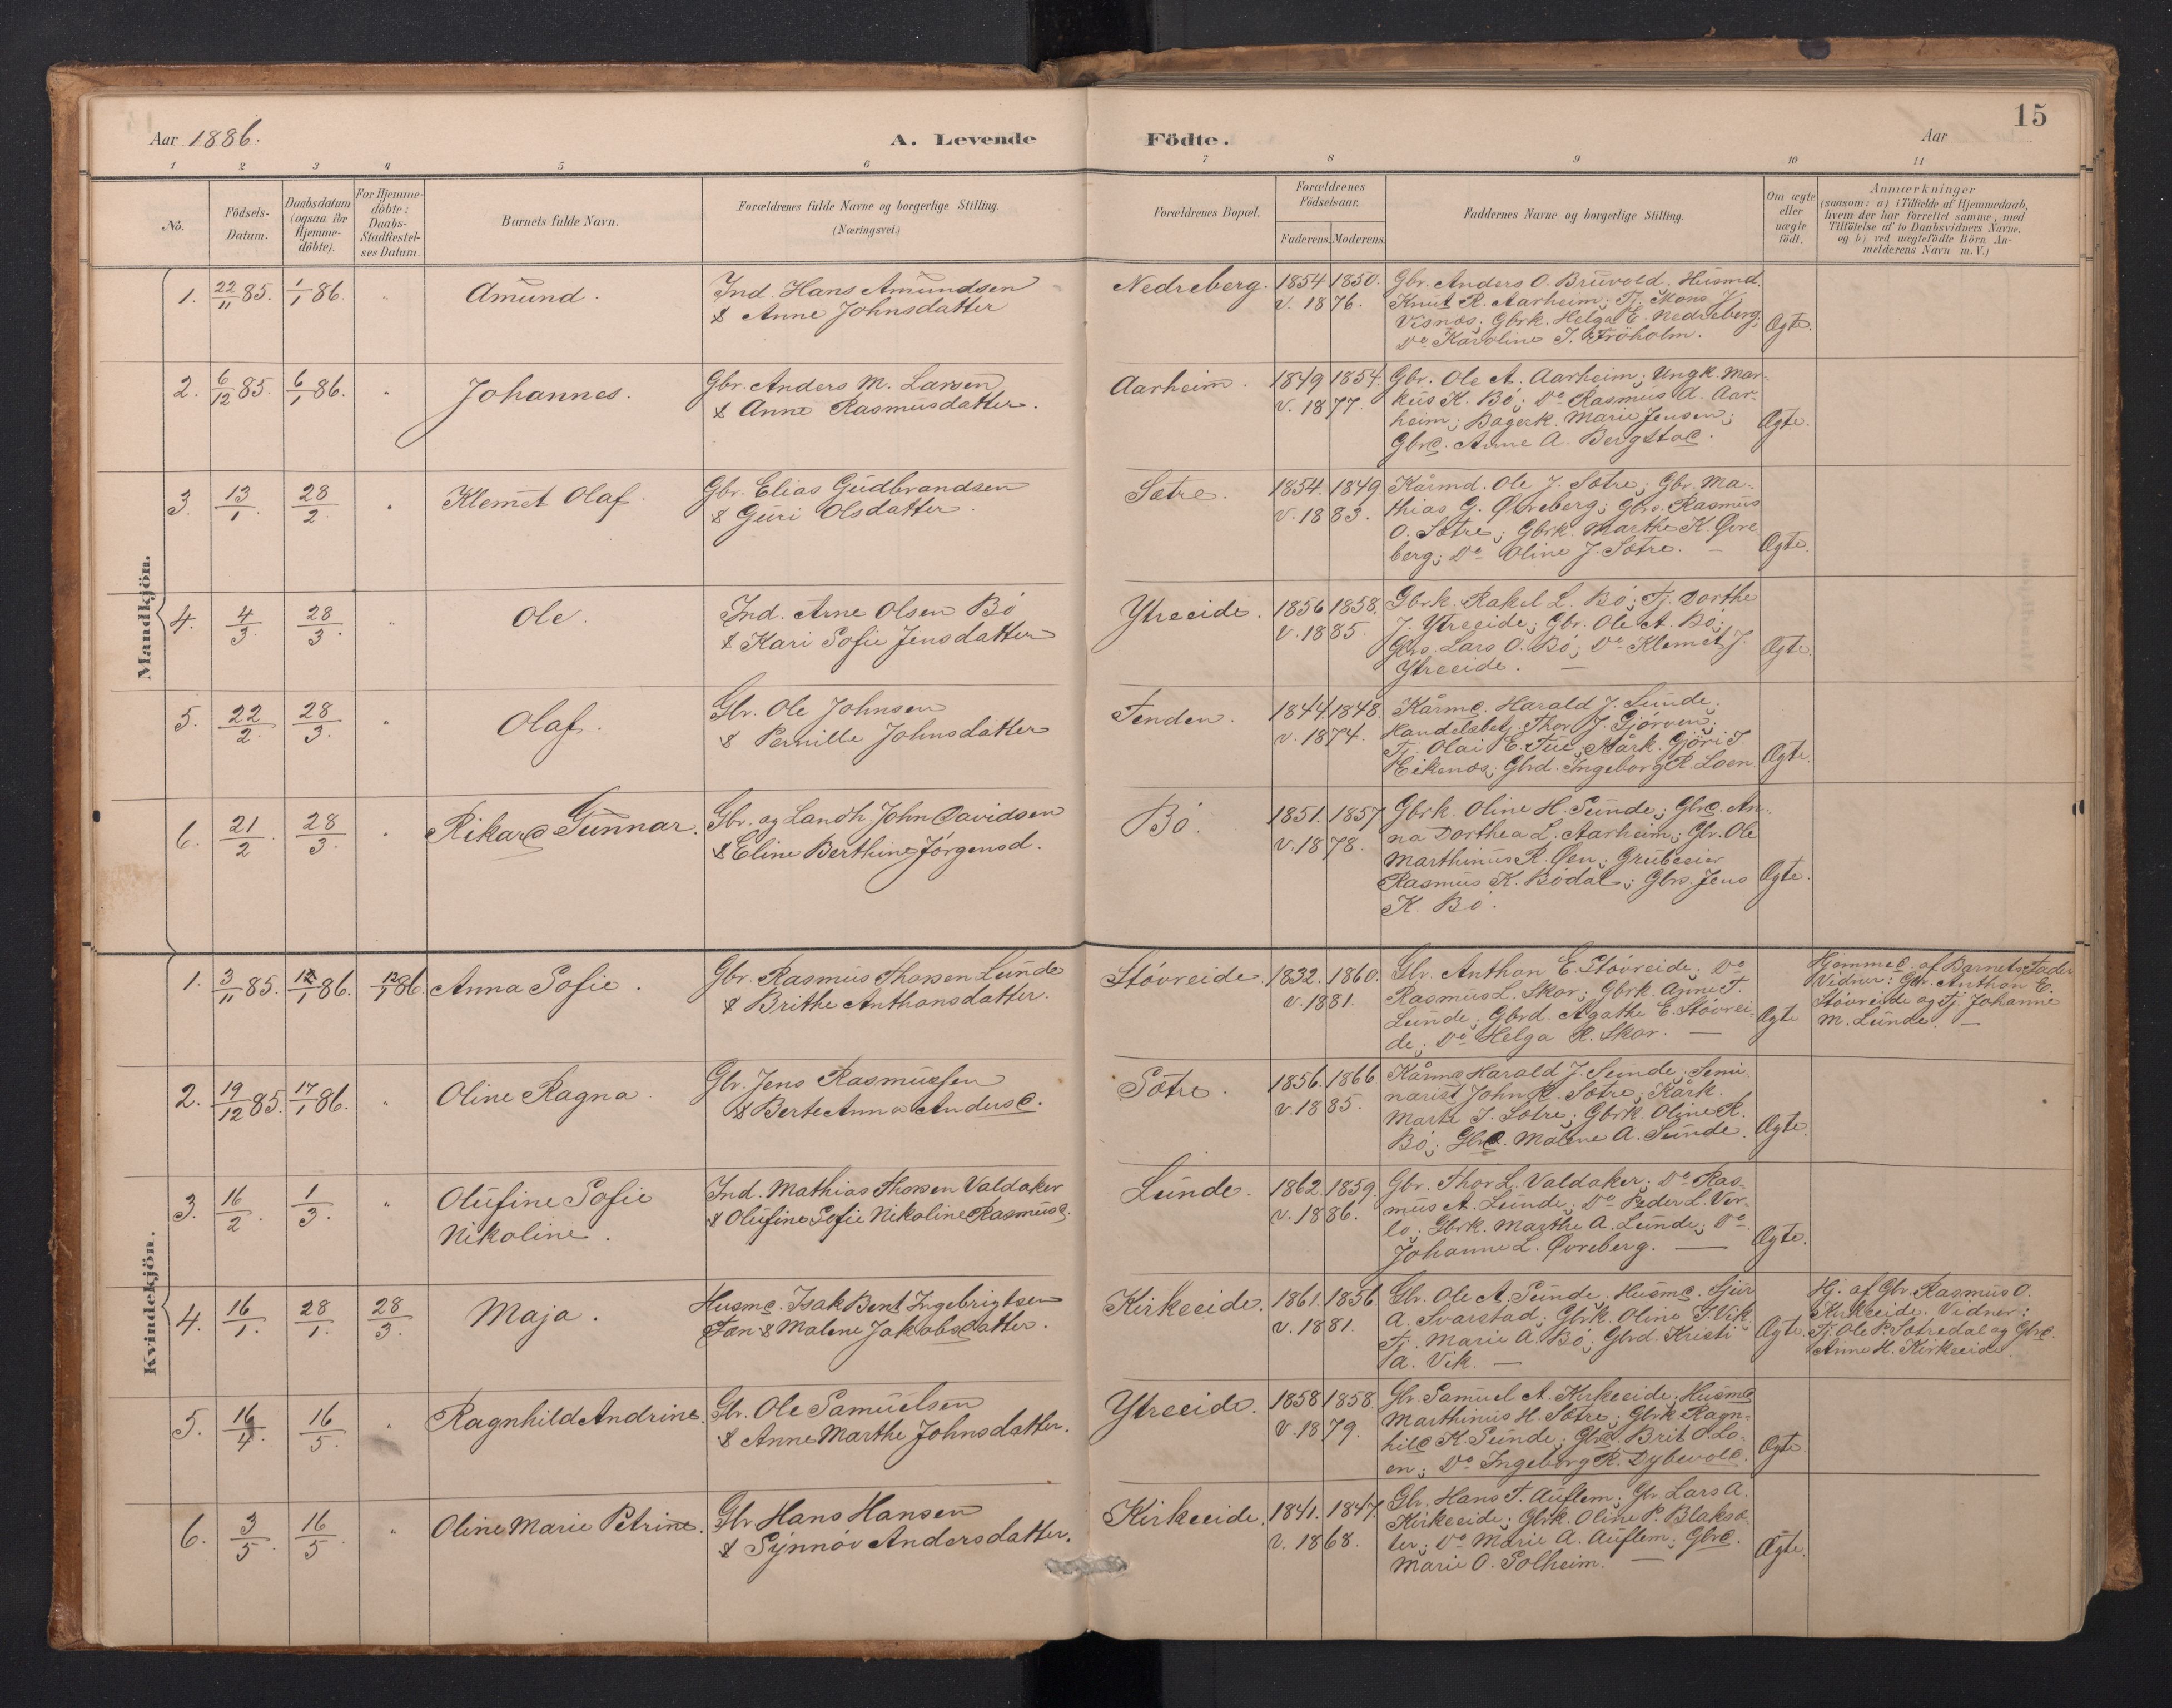 15
Aar 1886. A. Levende Födte. Aar
1 2 3 4 5 6 7 8 9 10 11
No.
Födsels-Datum.
Daabsdatum (ogsaa for Hjemme-döbte).
For Hjemme-döbte: Daabs-Stadfæstel-ses Datum.
Barnets fulde Navn.
Forældrenes fulde Navne og borgerlige Stilling.
(Næringsvei.)
Forældrenes Bopæl.
Forældrenes Födselsaar.
Faderens. Moderens.
Faddernes Navne og borgerlige Stilling.
Om ægte eller uægte födt.
Anmærkninger
(saasom: a) i Tilfælde af Hjemmedaab,
hvem der har forrettet samme, med
Tilföielse af to Daabsvidners Navne.
og b) ved uægtefödte Börn An-
melderens Navn m. V.)
Mandkjön.
1. 22/11 85. 1/1 86. " Amund.
Ind. Hans Amundsen
& Anne Johnsdatter
Nedreberg. 1854 1850.
v. 1876.
Gbr. Anders O. Bruvold, Husmd.
Knut R. Aarheim; Tj. Mons J.
Visnæs; Gbrk. Helga E. Nedreberg;
Do Karoline J. Fröholm.
Ægte.
2. 6/12 85. 6/1 86. " Johannes.
Gbr. Anders M. Larsen
& Anne Rasmusdatter.
Aarheim. 1849 1854.
v. 1877.
Gbr. Ole A. Aarheim; Ungk. Mar-
kus K. Bö; Do Rasmus A. Aar-
heim; Bagerk. Marie Jensen;
Gbrd. Anne A. Bergstad.
Ægte.
3. 13/1. 28/2 " Klemet Olaf.
Gbr. Elias Gudbrandsen
& Guri Olsdatter.
Sætre. 1854. 1849
v. 1883.
Kårmd. Ole J. Sætre; Gbr. Ma-
thias G. Øvreberg; Gbrs. Rasmus
O. Sætre; Gbrk. Marthe K. Øvre
berg; Do Oline J. Sætre. —
Ægte.
4. 4/3. 28/3. " Ole.
Ind. Arne Olsen Bö
& Kari Sofie Jensdatter
Ytreeide. 1856 1858.
v. 1885.
Gbrk. Rakel L. Bö; Tj. Dorthe
J. Ytreeide; Gbr. Ole A. Bö;
Gbrs. Lars O. Bö; Do Klemet J.
Ytreeide. —
Ægte.
5. 22/2. 28/3. " Olaf.
Gbr. Ole Johnsen
& Pernille Johnsdatter
Tenden. 1844. 1848.
v. 1874.
Kårmd. Harald J. Sunde;
Handelsbetj. Thor J. Gjörven;
Tj. Olai E. Tue; Kårk. Gjöri J.
Eikenæs; Gbrd. Ingeborg R. Loen.
Ægte.
6. 21/2 28/3. " Rikard Gunnar.
Gbr. og Landh. John Davidsen
& Eline Berthine Jörgensd.
Bö. 1851. 1857
v. 1878.
Gbrk. Oline H. Sunde; Gbrd. An-
na Dorthea L. Aarheim; Gbr. Ole
Marthinus R. Øen; Grubeeier
Rasmus K. Bödal; Gbrs. Jens
K. Bö.
Ægte.
Kvindekjön.
1. 3/11 85. 12/1 86. 12/1 86. Anna Sofie.
Gbr. Rasmus Thorsen Lunde
& Brithe Anthonsdatter.
Stövreide. 1832. 1860.
v. 1881.
Gbr. Anthon E. Stövreide; Do
Rasmus L. Skor; Gbrk. Anne T.
Lunde; Gbrd. Agathe E. Stövrei-
de; Do Helga R. Skor. —
Ægte
Hjemmed. af Barnets Fader
Vidner: Gbr. Anthon E.
Stövreide og Tj. Johanne
M. Lunde. —
2. 19/12 85. 17/1 86. " Oline Ragna.
Gbr. Jens Rasmussen
& Berte Anna Andersd.
Sætre. 1856. 1866.
v. 1885.
Kårmd Harald J. Sunde; Semi-
narist John R. Sætre; Kårk.
Marte J. Sætre; Gbrk. Oline R.
Bö; Gbrd. Malene A. Sunde.
Ægte.
3. 16/2. 1/3. " Olufine Sofie
Nikoline.
Ind. Mathias Thorsen Valdaker
& Olufine Sofie Nikoline Rasmusd.
Lunde. 1862. 1859.
v. 1886.
Gbr. Thor L. Valdaker; Do Ras-
mus A. Lunde; Do Peder L. Ver-
lo; Gbrk. Marthe A. Lunde; Do
Johanne L. Øvreberg. —
Ægte.
4. 16/1. 28/1. 28/3. Maja.
Husmd. Isak Bent Ingebrigtsen
Fæn & Malene Jakobsdatter.
Kirkeeide. 1861. 1856
v. 1881.
Gbr. Ole A. Sunde; Husmd. Sjur
A. Svarstad; Gbrk. Oline J. Vik;
Tj. Marie A. Bö; Gbrd. Kristi
A. Vik. —
Ægte.
Hj. af Gbr. Rasmus O.
Kirkeeide. Vidner:
Tj. Ole P. Sætredal og Gbrd.
Anne H. Kirkeeide.
5. 16/4. 16/5. " Ragnhild Andrine.
Gbr. Ole Samuelsen
& Anne Marthe Johnsdatter.
Ytreeide. 1858 1858.
v. 1879.
Gbr. Samuel A. Kirkeeide; Husmd
Marthinus H. Sætre; Gbrk. Ragn-
hild K. Sunde; Gbrd. Brit O. Lo-
en; Do Ingeborg R. Dybevold.
Ægte.
6. 3/5. 16/5 " Oline Marie Petrine.
Gbr Hans Hansen
& Synnöv Andersdatter.
Kirkeeide. 1841. 1847.
v. 1868.
Gbr. Hans T. Auflem; Gbr. Lars A.
Kirkeeide; Gbrk. Oline P. Blaksæ-
ter; Do Marie A. Auflem; Gbrd.
Marie O. Solheim. —
Ægte.